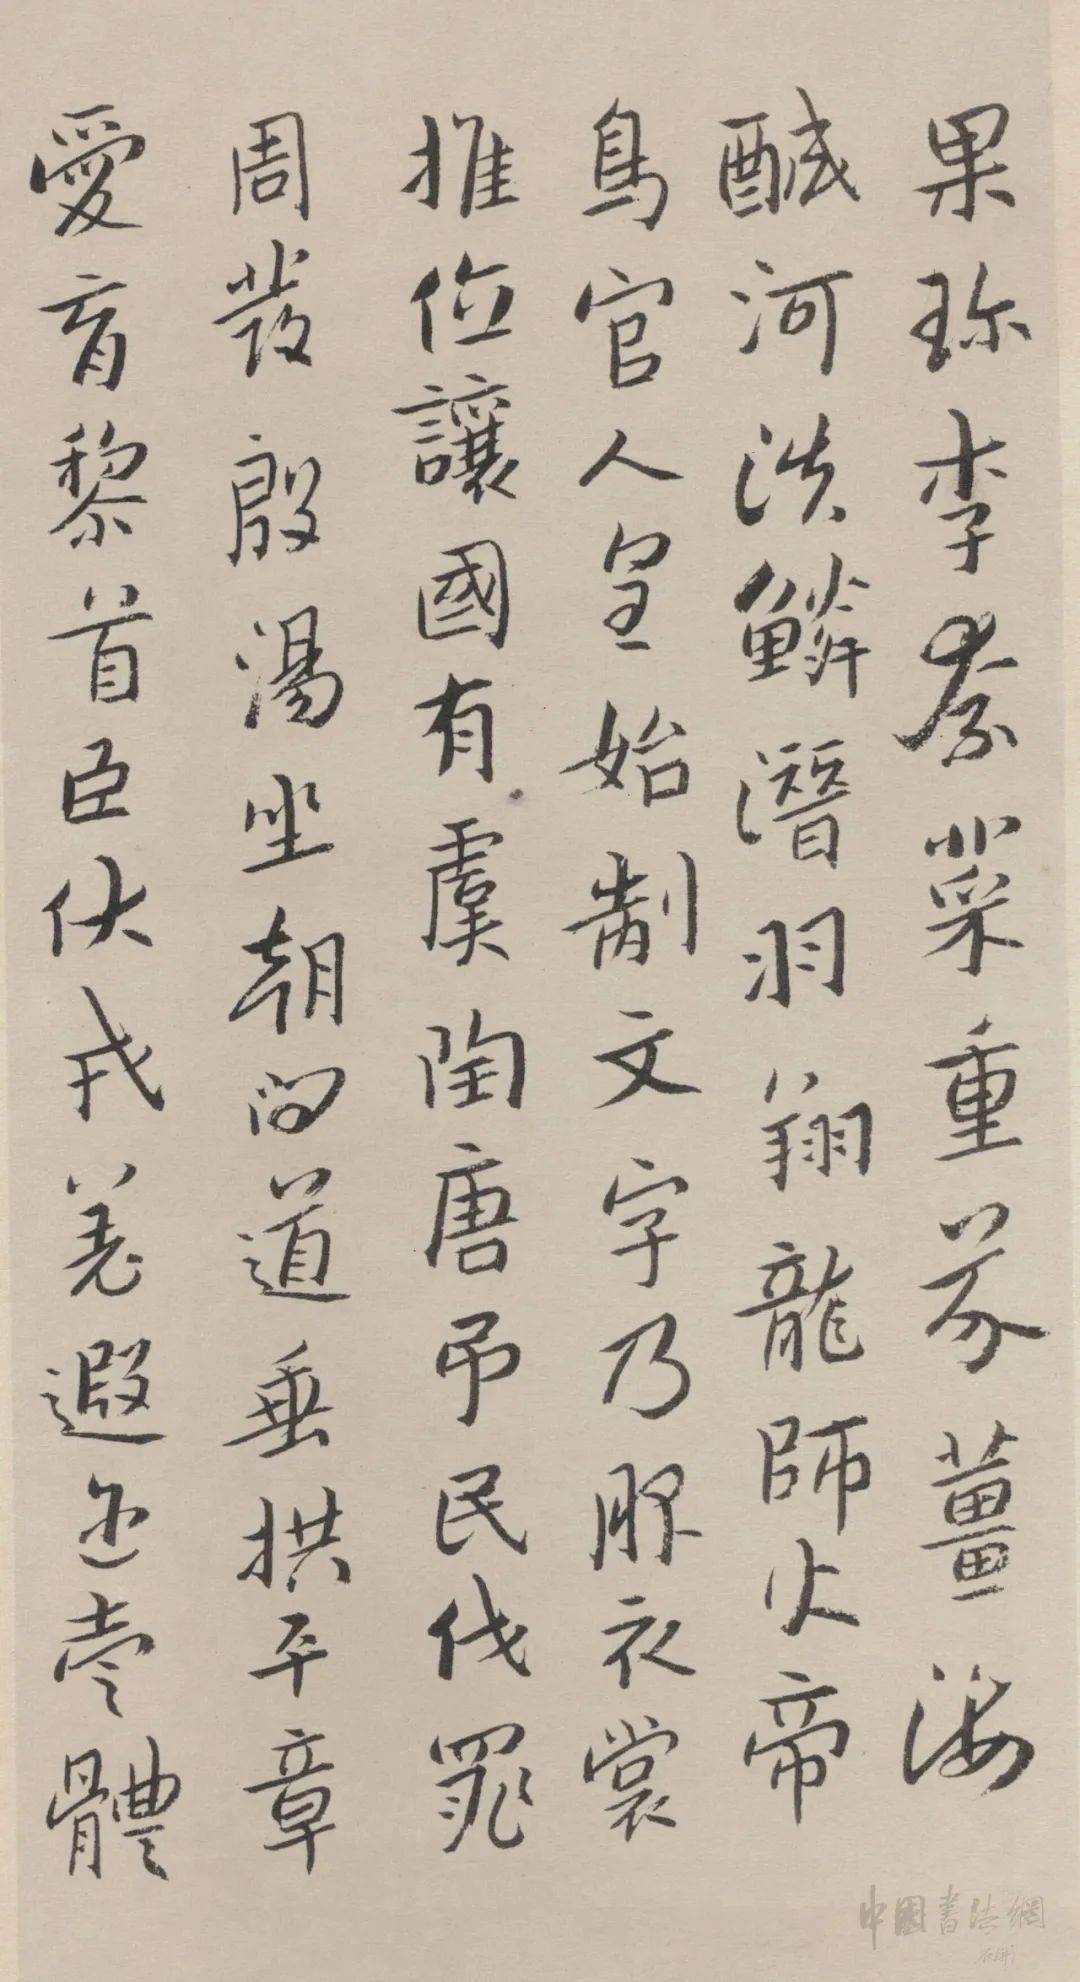 果珎李柰菜重芥薑海
醎河淡鱗潛羽翔龍師火帝
鳥官人皇始制文字乃服衣裳
推位讓國有虞陶唐弔民伐罪
周發殷湯坐朝问道垂拱平章
愛育黎首臣伏戎羌遐迩壹體
中國書法網